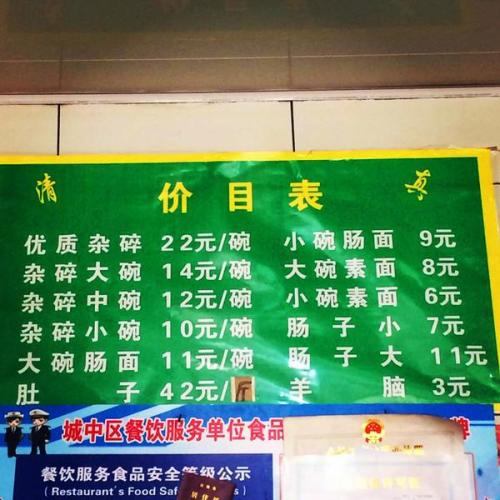 清 价目表 真
优质杂碎 22元/碗 小碗肠面 9元
杂碎大碗 14元/碗 大碗素面 8元
杂碎中碗 12元/碗 小碗素面 6元
杂碎小碗 10元/碗 肠子小 7元
大碗肠面 11元/碗 肠子大 11元
肚子 42元/斤 羊脑 3元
城中区餐饮服务单位食品 牌
餐饮服务食品安全等级公示
(Restaurant's Food Saf